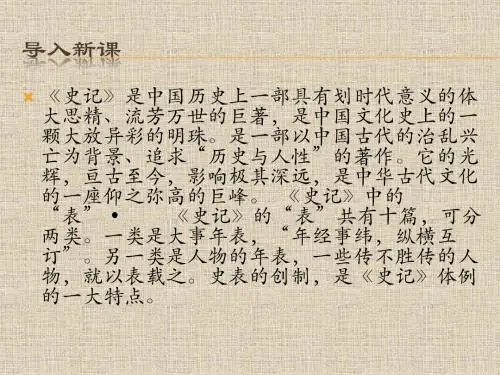 导入新课
《史记》是中国历史上一部具有划时代意义的体
大思精、流芳万世的巨著，是中国文化史上的一
颗大放异彩的明珠。是一部以中国古代的治乱兴
亡为背景、追求“历史与人性”的著作。它的光
辉，亘古至今，影响极其深远，是中华古代文化
的一座仰之弥高的巨峰。 《史记》中的
“表” • 《史记》的“表”共有十篇，可分
两类。一类是大事年表，“年经事纬，纵横互
订”。另一类是人物的年表，一些传不胜传的人
物，就以表载之。史表的创制，是《史记》体例
的一大特点。